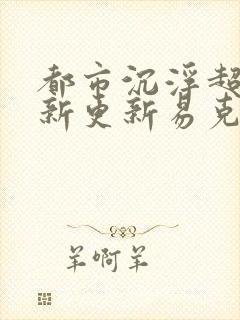 都市沉浮超
新更新易克
羊啊羊